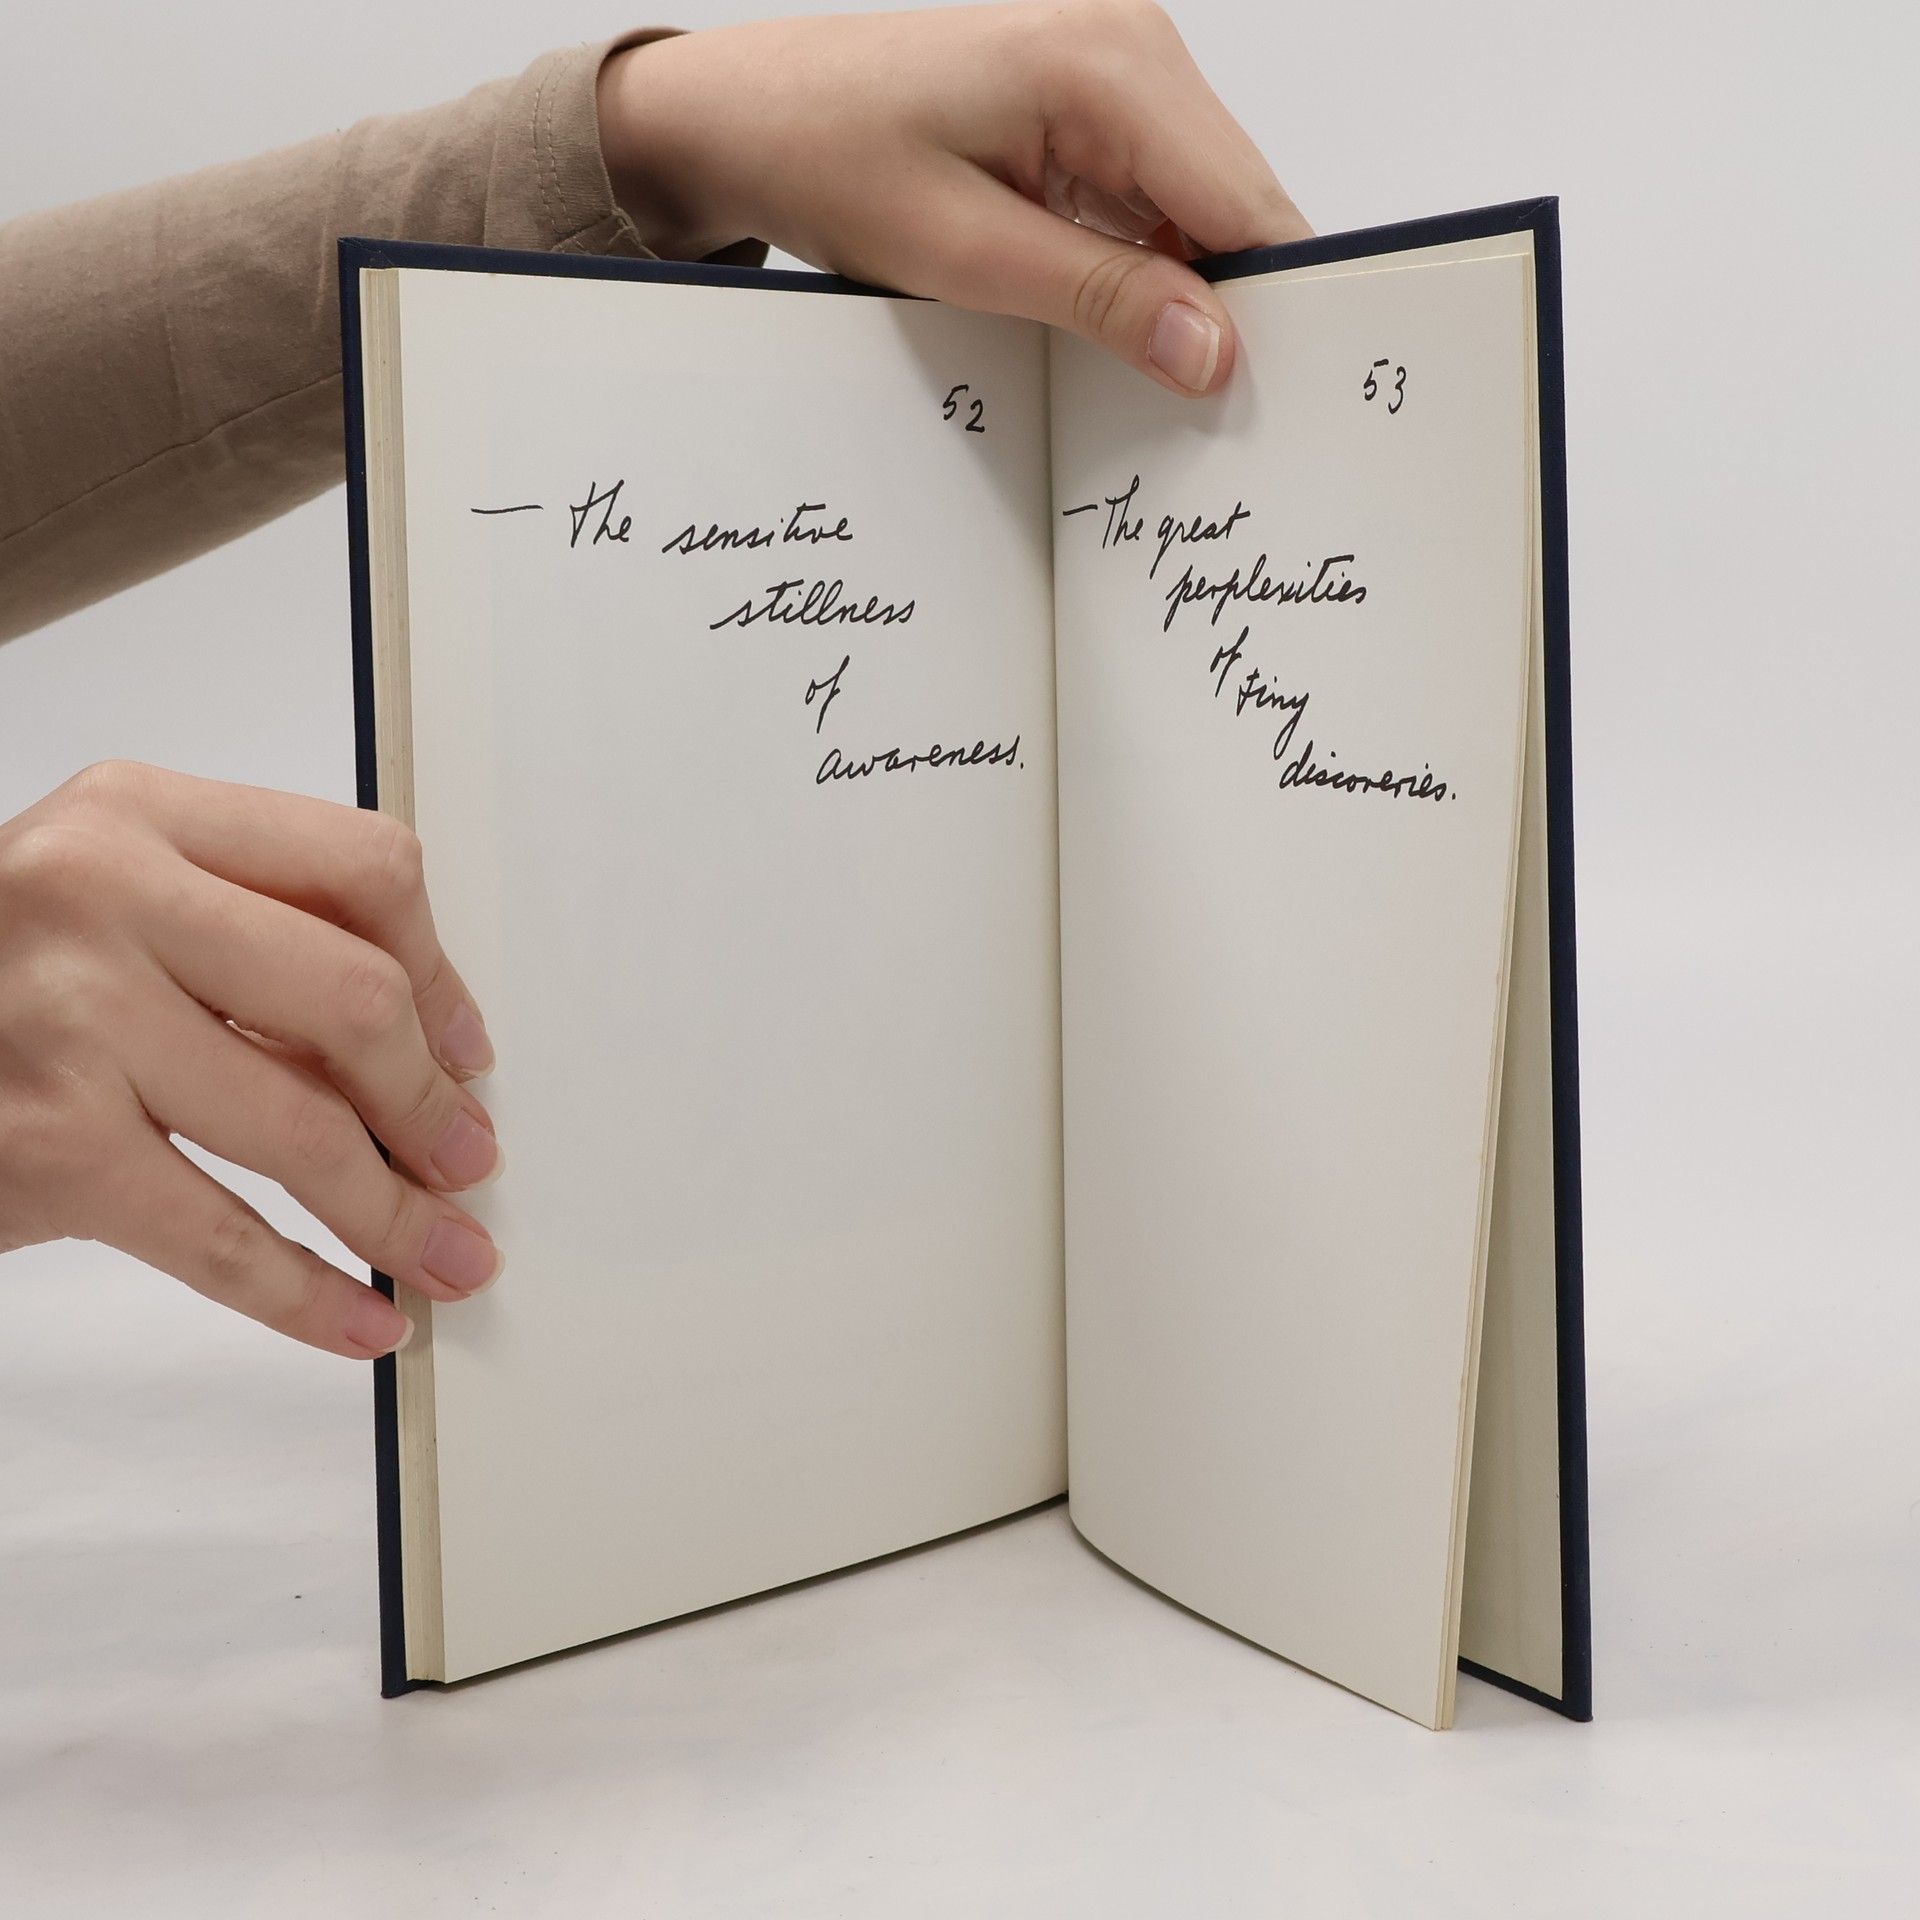 52
— the sensitive
stillness
of
awareness.
53
— The great
perplexities
of
tiny
discoveries.